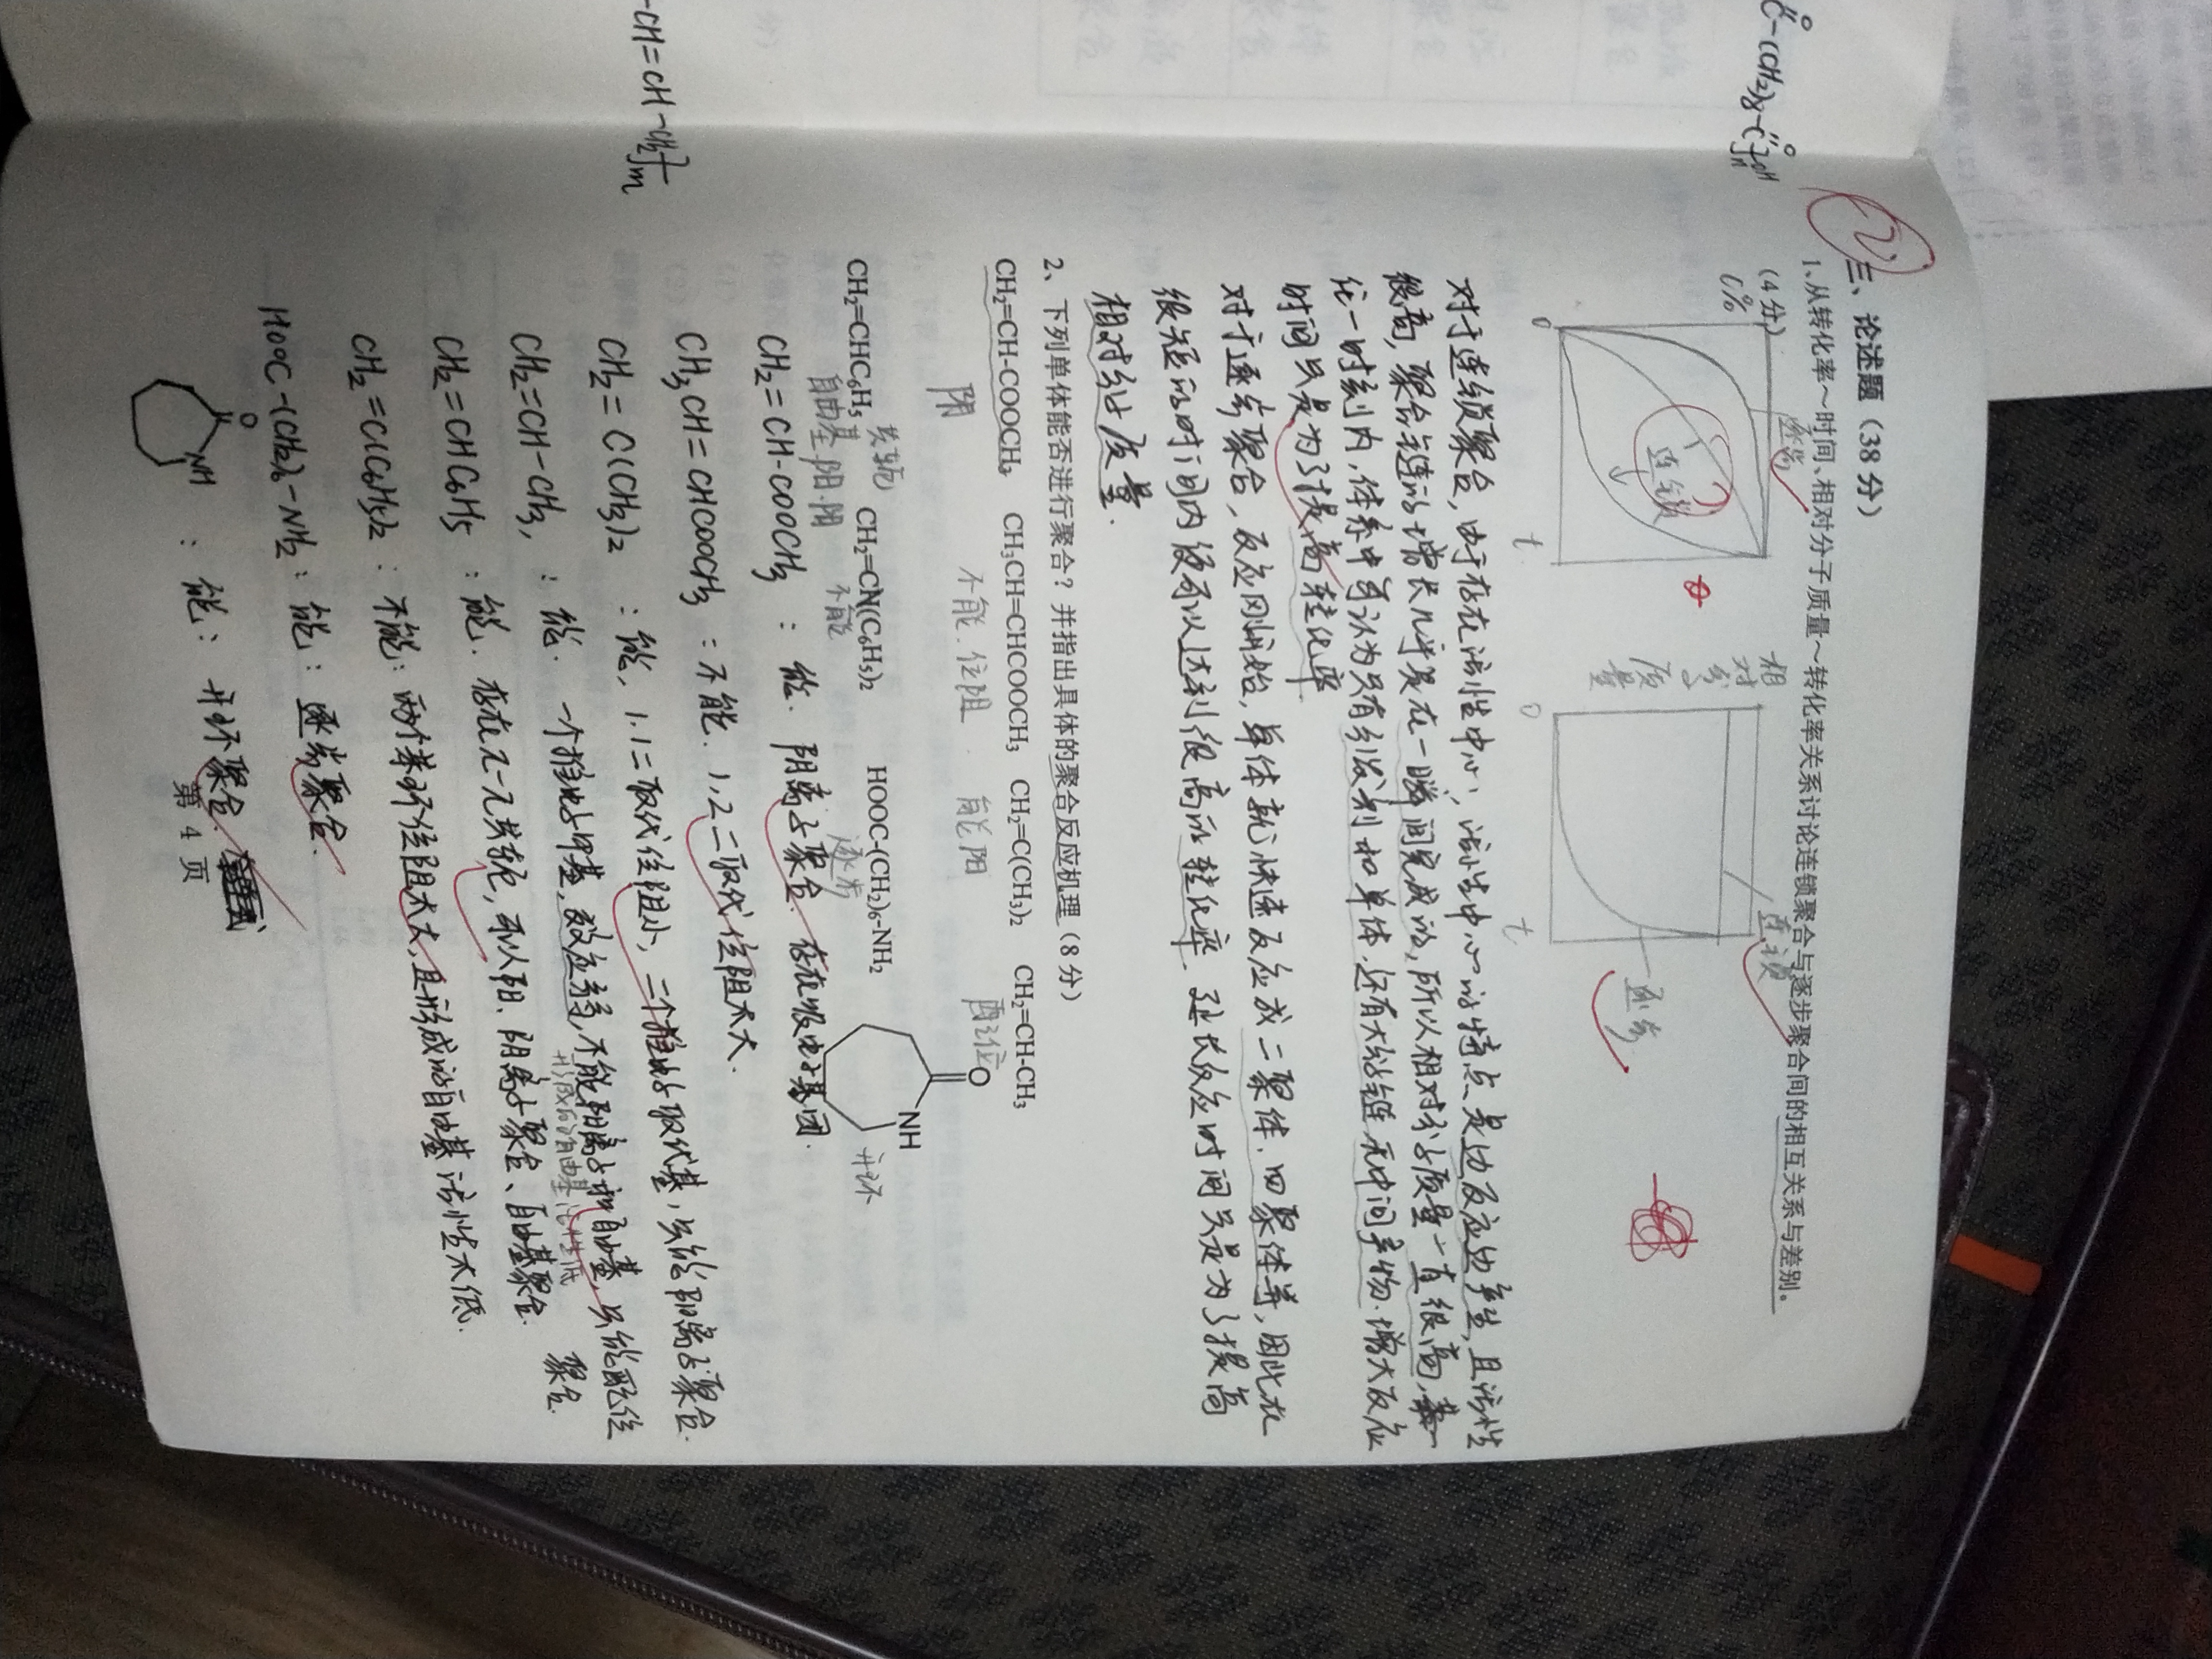 三、论述题（38分）
1、从转化率～时间、相对分子质量～转化率关系讨论连锁聚合与逐步聚合间的相互关系与差别。
（4分）
C%
逐步
连锁
0
t
相对分子质量
连锁
逐步
0
t
对于连锁聚合，由于存在活性中心，活性中心的特点是边反应边产生，且活性
很高，聚合链的增长几乎是在一瞬间完成的，所以相对分子质量一直很高，
一时刻内，体系中可认为只有引发剂和单体，还有大分子链无中间产物.增大反应
时间只是为了提高转化率
对于逐步聚合，反应刚开始，单体就快速反应成二聚体.四聚体等，因此在
很短的时间内便可以达到很高的转化率.延长反应时间只是为了提高
相对分子质量.
2、下列单体能否进行聚合？并指出具体的聚合反应机理（8分）
CH2=CH-COOCH3 CH3CH=CHCOOCH3 CH2=C(CH3)2 CH2=CH-CH3
阴 不能.位阻 能阳 配位
CH2=CHC6H5 CH2=CN(C6H5)2 HOOC-(CH2)6-NH2
O
NH
共轭
自由基.阴.阳 不能 逐步 开环
CH2=CH-COOCH3 : 能. 阴离子聚合. 存在吸电子基团.
CH3CH=CHCOOCH3 : 不能. 1,2二取代位阻太大.
CH2=C(CH3)2 : 能, 1.1二取代位阻小, 二个推电子取代基, 只能阳离子聚合.
CH2=CH-CH3, : 能. 一个推电子甲基, 效应弱, 不能阳离子和自由基, 只能配位
聚合.
形成的自由基活性低
CH2=CHC6H5 : 能. 存在π-π共轭, 可以阳、阴离子聚合、自由基聚合.
CH2=C(C6H5)2 : 不能: 两个苯环位阻太大, 且形成的自由基活性太低.
HOOC-(CH2)6-NH2 : 能: 逐步聚合.
O
NH : 能: 开环聚合.
第 4 页
-CH=CH-CH2]m
O O
C-(CH2)8-C]nOH